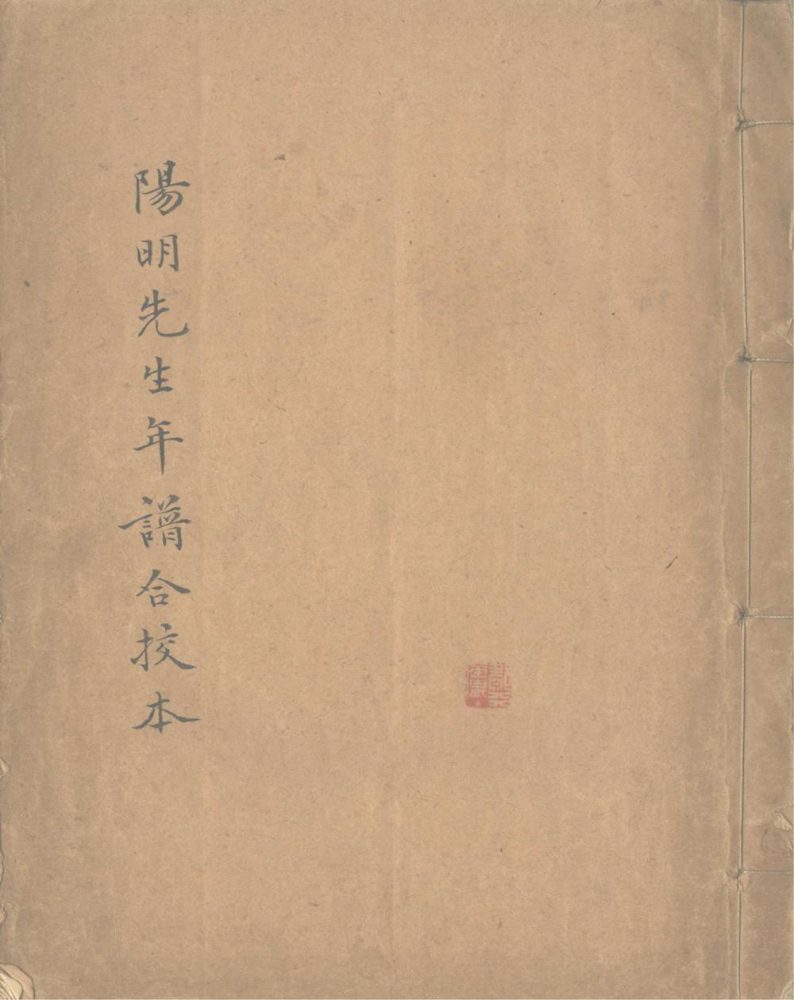 陽明先生年譜合挍本